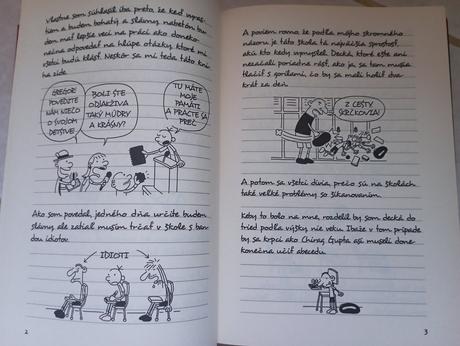 Vlastne som súhlasil iba preto, že keď vyras-
tiem a budem bohatý a slávny, nebetón bu-
dem mať lepšie veci na práci ako doneko-
nečna odpovedať na hlúpe otázky, ktoré mi
ľudia budú klásť. Neskôr sa mi teda táto kni-
ha zíde.
GREGOR
POVEDZTE
NÁM NIEČO
O SVOJOM
DETSTVE!
BOLI STE
ODJAKŽIVA
TAKÝ MÚDRY
A KRÁSNY?
TU MÁTE
MOJE
PAMÄTI
A PRACTE SA
PREČ
Ako som povedal, jedného dňa určite budem
slávny, ale zatiaľ musím trčať v škole s ban-
dou idiotov.
IDIOTI
2
A poviem rovno, že podľa môjho skromného
názoru je táto škola tá najväčšia sprostosť,
akú kto kedy vymyslel. Decká, ktoré ešte ani
nezačali poriadne rásť, ako ja, sa tam musia
tlačiť s gorilami, čo by sa mali holiť dva
krát za deň.
Z CESTY,
SKRČKOVIA!
A potom sa všetci divia, prečo sú na školách
také veľké problémy so šikanovaním.
Keby to bolo na mne, rozdelil by som decká do
tried podľa výšky, nie veku. Ibaže v tom prípade
by sa krpci ako Chirag Gupta asi museli done-
konečna učiť abecedu.
3